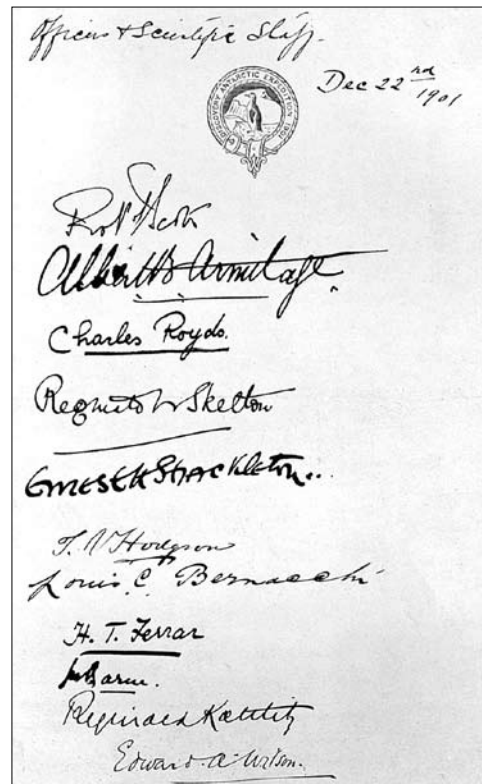 Officers & Scientific Staff.
Dec 22nd
1901
DISCOVERY ANTARCTIC EXPEDITION 1901
Robt F Scott
Albert B Armitage.
Charles Royds.
Reginald W Skelton
Ernest H Shackleton..
T. V Hodgson
Louis C. Bernacchi
H. T. Ferrar
M Barne.
Reginald Koettlitz
Edward A. Wilson.